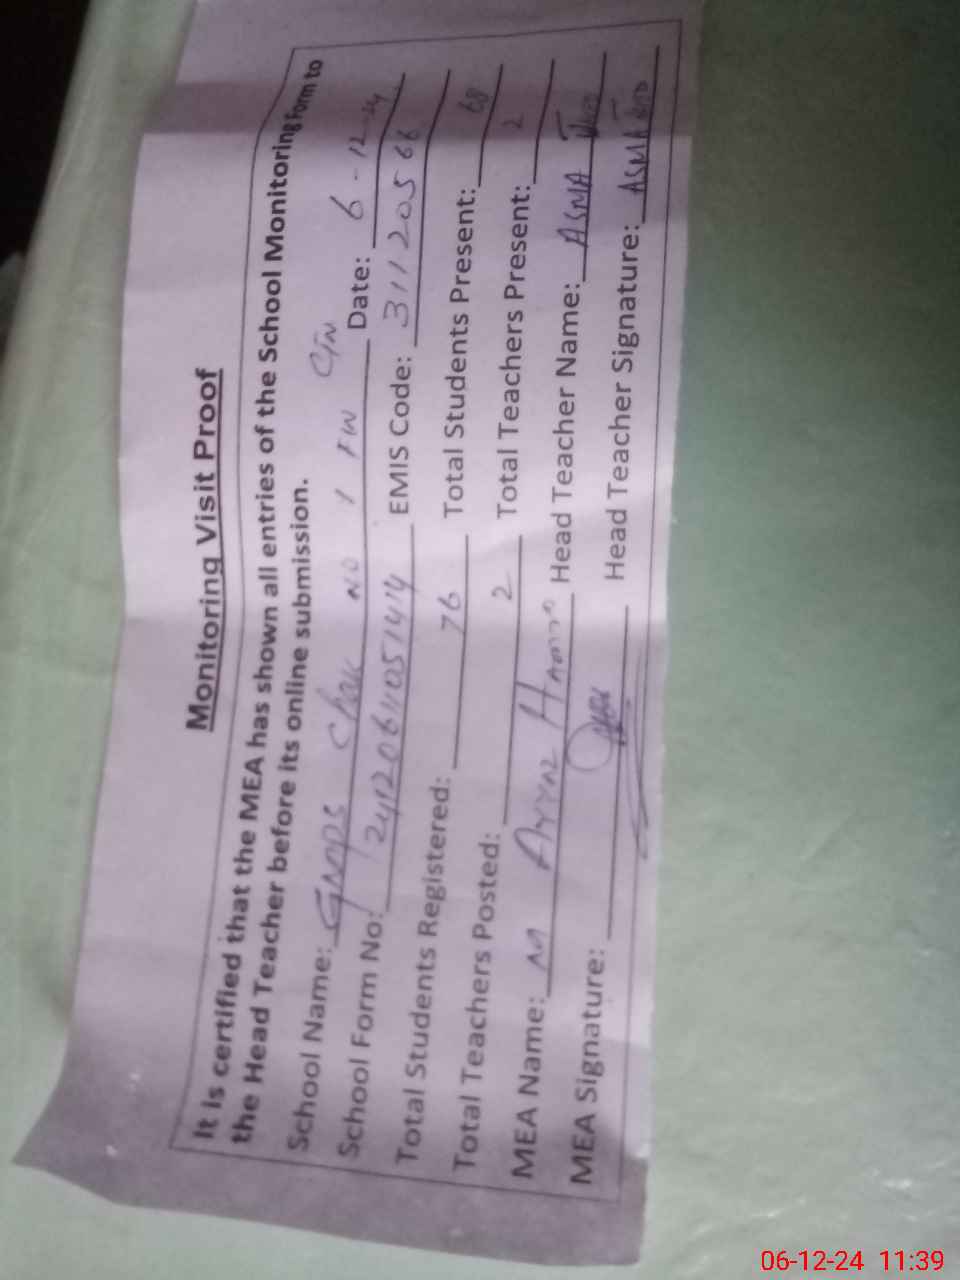 Monitoring Visit Proof
It is certified that the MEA has shown all entries of the School Monitoring Form to
the Head Teacher before its online submission.
School Name: GMPS Chak No 1 FW CTN Date: 6-12-24
School Form No: EMIS Code: 31120566
Total Students Registered: 76 Total Students Present: 68
Total Teachers Posted: 2 Total Teachers Present: 2
MEA Name: M Head Teacher Name: ASMA
MEA Signature: Head Teacher Signature: ASMA
06-12-24 11:39